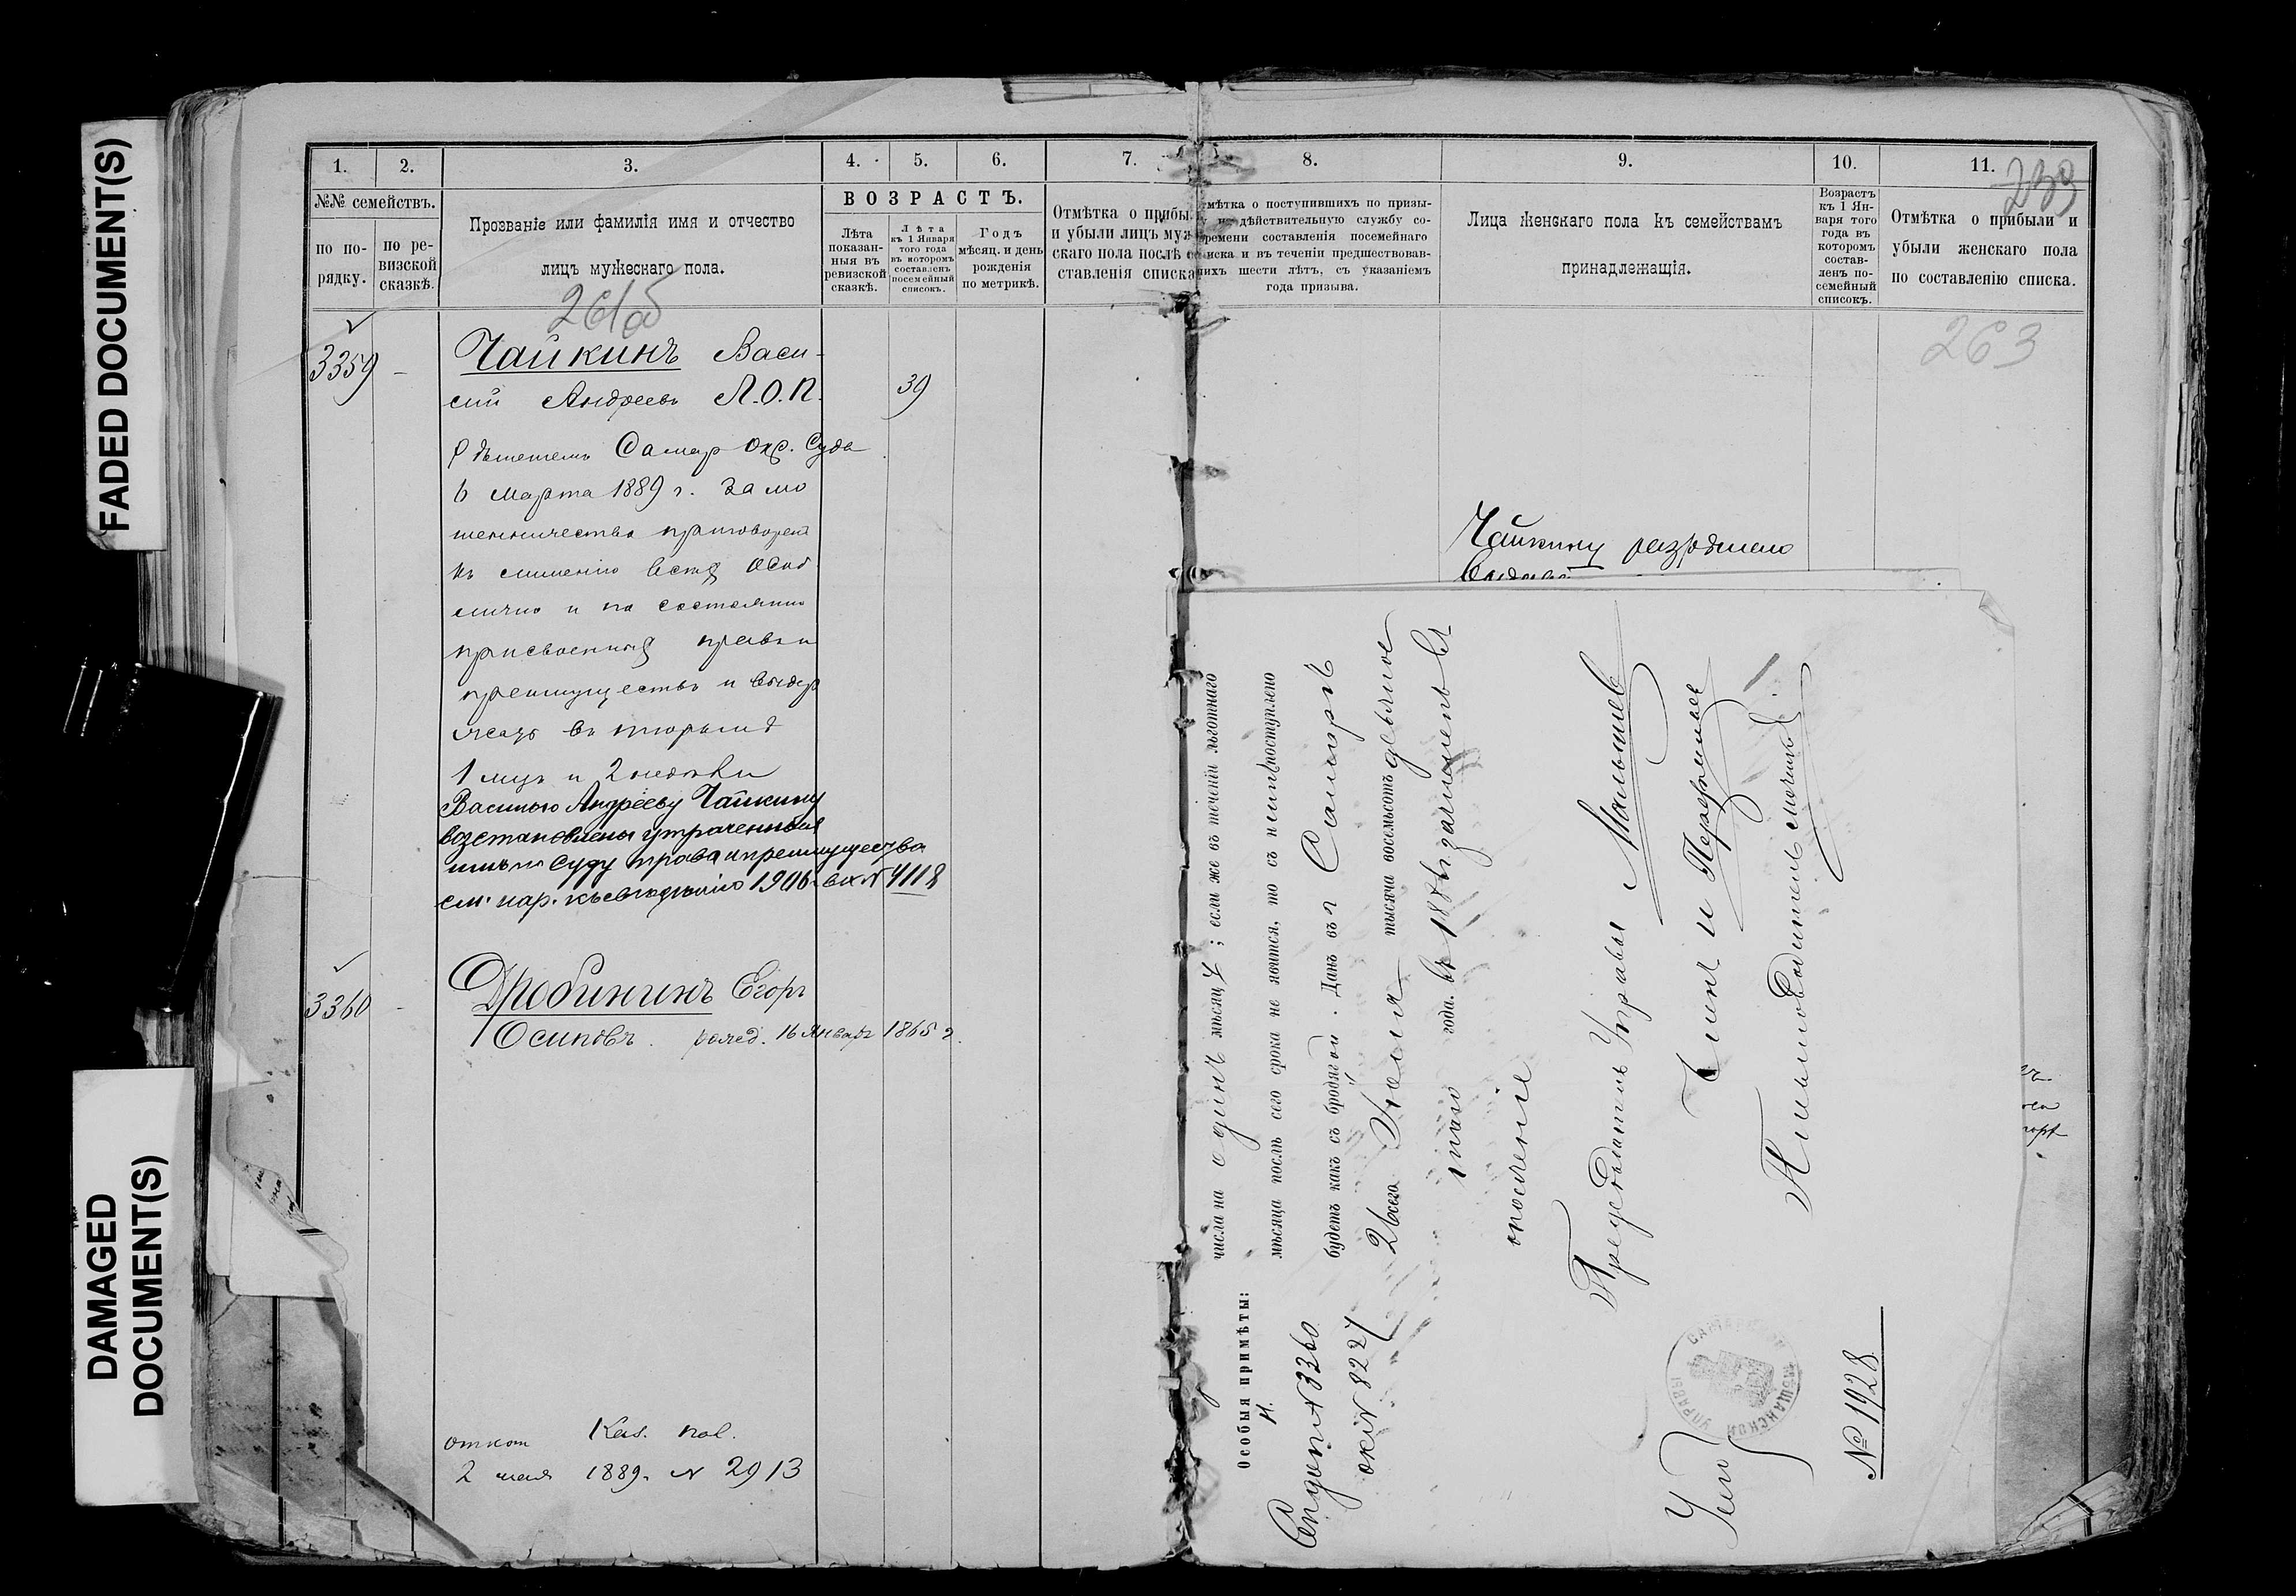 FADED DOCUMENT(S)
DAMAGED
DOCUMENT(S)
1.
2.
3.
4.
5.
6.
7.
8.
9.
10.
11.
239
№№ семействъ.
по по-
рядку.
по ре-
визской
сказкѣ.
Прозваніе или фамилія имя и отчество
лицъ мужескаго пола.
ВОЗРАСТЪ.
Лѣта
показан-
ныя въ
ревизской
сказкѣ.
Лѣта
къ 1 Января
того года
въ которомъ
составленъ
посемейный
списокъ.
Годъ
мѣсяц. и день
рожденія
по метрикѣ.
Отмѣтка о прибы
и убыли лицъ муж
скаго пола послѣ со
ставленія списка
мѣтка о поступившихъ по призы-
у на дѣйствительную службу со-
времени составленія посемейнаго
писка и въ теченіи предшествовав-
шихъ шести лѣтъ, съ указаніемъ
года призыва.
Лица женскаго пола къ семействамъ
принадлежащія.
Возрастъ
къ 1 Ян-
варя того
года въ
которомъ
состав-
ленъ по-
семейный
списокъ.
Отмѣтка о прибыли и
убыли женскаго пола
по составленію списка.
263
3359
Чайкинъ Васи-
лій Андреевъ П.О.П.
39
Рѣшеніемъ Самар Окр. Суда
6 Марта 1889 г. за мо
шенничество приговоренъ
къ лишенію всѣхъ особ
лично и по состоянію
присвоенныхъ правъ и
преимуществъ и выдер
жать въ тюрьмѣ
1 мцъ и 2 недѣли
Василью Андрееву Чайкину
возстановлены утраченныя
имъ по суду права и преимущества
см. нар. къ свѣдѣнію 1906 г. вх № 4118
3360
Дробининъ Егоръ
Осиповъ. рожд. 16 Января 1865 г.
Каз. пал.
2 мая 1889 г. № 2913
Чайкину разрѣшено
числа на одинъ мѣсяцъ; если же въ теченіи льготнаго
мѣсяца послѣ сего срока не явится, то съ нимъ поступлено
будетъ какъ съ бродягой. Данъ въ г Самарѣ
26го Іюля тысяча восемьсотъ
года. Въ 188 зачисленъ въ
ополченіе
Предсѣдатель Управы Малышев
Письмоводитель
Особыя примѣты:
Н.
№ 3360
№ 8227
САМАРСКОЙ МѢЩАНСКОЙ УПРАВЫ
№ 1928